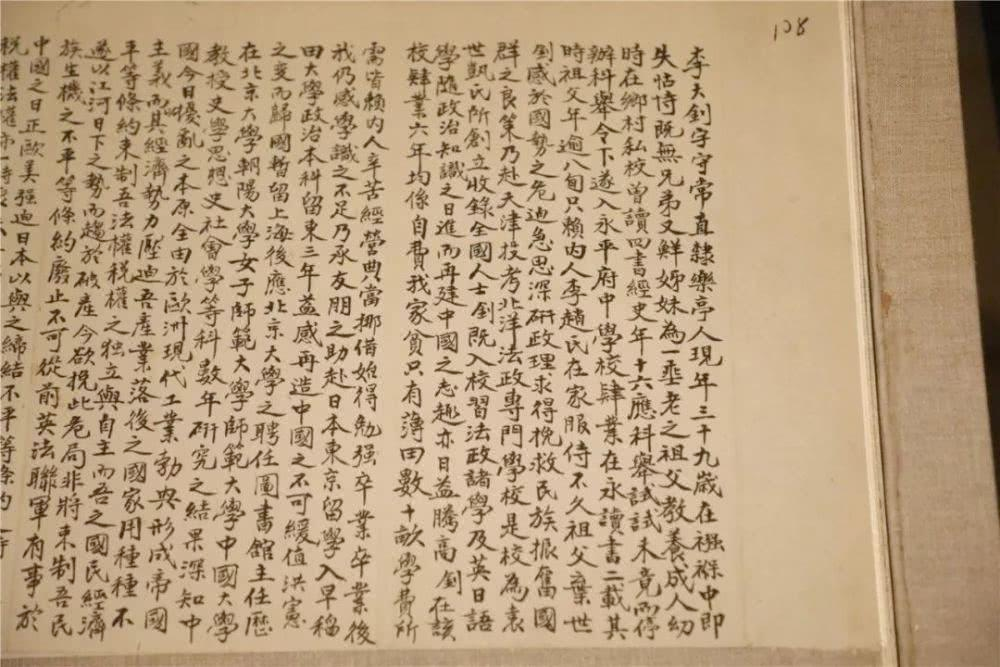 108
李大釗字守常直隸樂亭人現年三十九歲在襁褓中即
失怙恃既無兄弟又鮮姊妹為一垂老之祖父教養成人幼
時在鄉村私校曾讀四書經史年十六應科舉試試未竟而停
辦科舉令下遂入永平府中學校肆業在永讀書二載其
時祖父年逾八旬只賴內人李趙氏在家服侍不久祖父棄世
釗感於國勢之危迫急思深研政理求得挽救民族振奮國
群之良策乃赴天津投考北洋法政專門學校是校為袁
世凱氏所創立收錄全國人士釗既入校習法政諸學及英日語
學隨政治知識之日進而再建中國之志趣亦日益騰高釗在該
校肄業六年均係自費我家貧只有薄田數十畝學費所
需皆賴內人辛苦經營典當挪借始得勉強卒業卒業後
我仍感學識之不足乃承友朋之助赴日本東京留學入早稻
田大學政治本科留東三年益感再造中國之不可緩值洪憲
之變而歸國暫留上海後應北京大學之聘任圖書館主任歷
在北京大學朝陽大學女子師範大學師範大學中國大學
教授史學思想史社會學等科數年研究之結果深知中
國今日擾亂之本原全由於歐洲現代工業勃興形成帝國
主義而其經濟勢力壓迫吾產業落後之國家用種種不
平等條約束制吾法權稅權之獨立與自主而吾之國民經濟
遂以江河日下之勢而趨於破產今欲挽此危局非將束制吾民
族生機之不平等條約廢止不可從前英法聯軍有事於
中國之日正歐美强迫日本以與之締結不平等條約之時
稅權法權亦一時